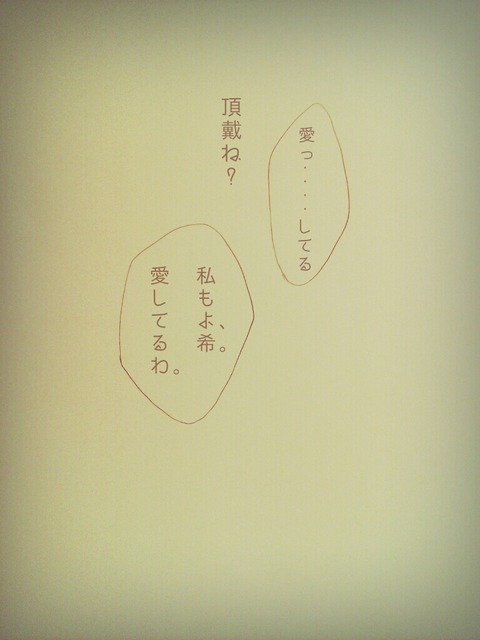 愛っ・・・・してる
頂戴ね?
私もよ、希。
愛してるわ。